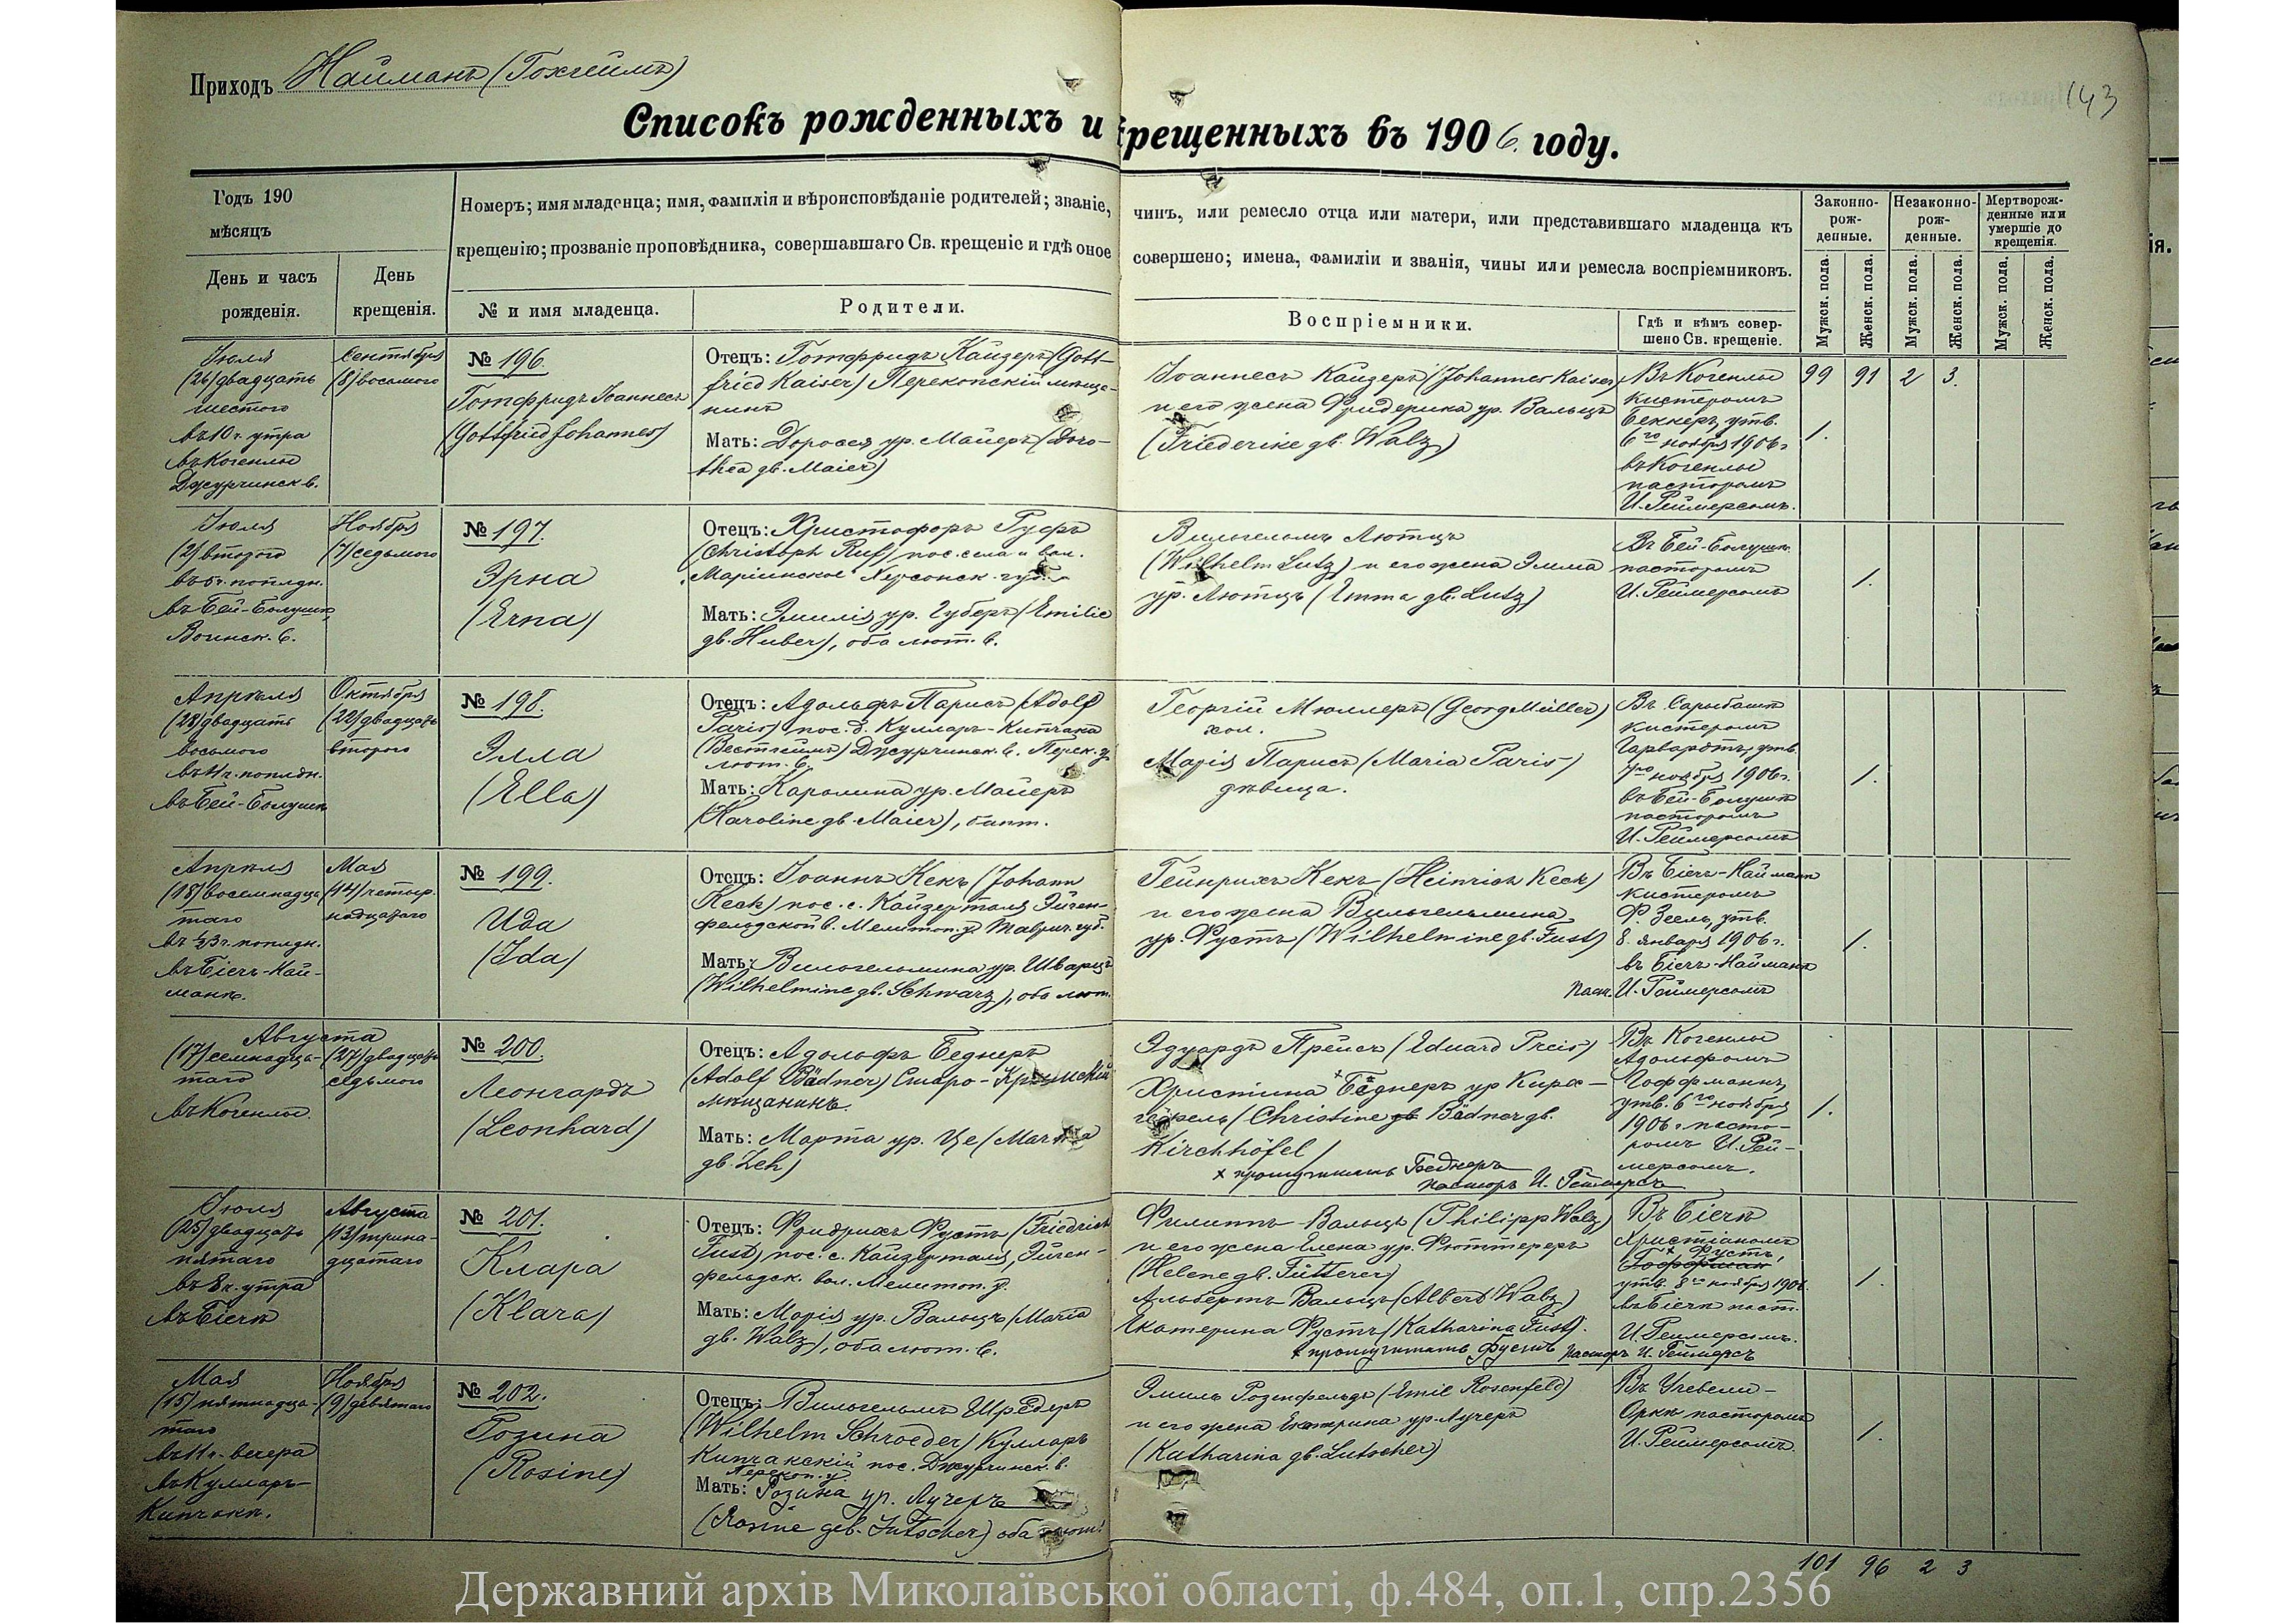 Приходъ Найманъ (Гохгеймъ)
143
Списокъ рожденныхъ и крещенныхъ въ 1906. году.
Годъ 190
мѣсяцъ
День и часъ
рожденія.
День
крещенія.
Номеръ; имя младенца; имя, фамилія и вѣроисповѣданіе родителей; званіе,
крещенію; прозваніе проповѣдника, совершавшаго Св. крещеніе и гдѣ оное
№ и имя младенца.
Родители.
чинъ, или ремесло отца или матери, или представившаго младенца къ
совершено; имена, фамиліи и званія, чины или ремесла воспріемниковъ.
Воспріемники.
Гдѣ и кѣмъ совер-
шено Св. крещеніе.
Законно-
рож-
денные.
Незаконно-
рож-
денные.
Мертворож-
денные или
умершіе до
крещенія.
Мужск. пола.
Женск. пола.
Мужск. пола.
Женск. пола.
Мужск. пола.
Женск. пола.
Іюля
(26) двадцать
шестого
въ 10 ч. утра
въ Когенлы
Джурчинск в.
Сентября
(8) восьмого
№ 196.
Готфридъ Іоаннесъ
(Gottfried Johannes)
Отецъ: Готфридъ Кайзеръ (Gott-
fried Kaiser) Перекопскій мѣща-
нинъ
Мать: Доротея ур. Майеръ (Doro-
thea gb. Maier)
Іоаннесъ Кайзеръ (Johannes Kaiser)
и его жена Фридерика ур. Вальцъ
(Friederike gb. Walz)
Въ Когенлы
кистеромъ
Беккеръ, утв.
6го ноября 1906 г
въ Когенлы
пасторомъ
И. Реймерсомъ.
99 91 2 3.
1.
Іюля
(2) второго
въ 5 ч. поплдн.
въ Бей-Болушъ,
Воинск. в.
Ноября
(7) седьмого
№ 197.
Эрна
(Erna)
Отецъ: Христофоръ Руфъ
(Christoph Ruf) пос. села и вол.
Маріинское Херсонск. губ.
Мать: Эмилія ур. Губеръ (Emilie
gb. Huber), оба лют. в.
Вильгельмъ Лютцъ
(Wilhelm Lutz) и его жена Эмма
ур. Лютцъ (Emma gb. Lutz)
Въ Бей-Болушѣ
пасторомъ
И. Реймерсомъ
1.
Апрѣля
(28) двадцать
восьмого
въ 11 ч. поплдн.
въ Бей-Болушѣ
Октября
(22) двадцать
второго
№ 198.
Элла
(Ella)
Отецъ: Адольфъ Парисъ (Adolf
Paris) пос. д. Кулларъ-Кипчакъ
(Вестгеймъ) Джурчинск. в. Перек. у.
лют. в.
Мать: Каролина ур. Майеръ
(Karoline gb. Maier), бапт.
Георгій Мюллеръ (Georg Müller)
хол.
Марія Парисъ (Maria Paris)
дѣвица.
Въ Сарыбашѣ
кистеромъ
Гарвардтъ, утв.
7го ноября 1906 г.
въ Бей-Болушѣ
пасторомъ
И. Реймерсомъ
1.
Апрѣля
(18) восемнадца-
таго
въ ½3 ч. поплдн.
въ Біечъ-Най-
манѣ.
Мая
(14) четыр-
надцатаго
№ 199.
Ида
(Ida)
Отецъ: Іоаннъ Кекъ (Johann
Keck) пос. с. Кайзерталя Эйген-
фельдской в. Мелитоп. у. Таврич. губ.
Мать: Вильгельмина ур. Шварцъ
(Wilhelmine gb. Schwarz), оба лют.
Гейнрихъ Кекъ (Heinrich Keck)
и его жена Вильгельмина
ур. Фустъ (Wilhelmine gb. Fust)
Въ Біечъ-Найманѣ
кистеромъ
Ф. Зеель, утв.
8. января 1906 г.
въ Біечъ-Найманѣ
Паст. И. Реймерсомъ
1.
Августа
(17) семнадца-
таго
въ Когенлы.
(27) двадцать
седьмого
№ 200.
Леонгардъ
(Leonhard)
Отецъ: Адольфъ Беднеръ
(Adolf Bädner) Старо-Крымскій
мѣщанинъ.
Мать: Марта ур. Це (Martha
gb. Zeh)
Эдуардъ Прейсъ (Eduard Preis)
Христина Беднеръ ур Кирх-
гефель (Christine Bädner gb.
Kirchhöfel)
× прочитать Беднеръ
Пасторъ И. Реймерсъ
Въ Когенлы
Адольфомъ
Гоффманнъ,
утв. 6го ноября
1906 г. пасто-
ромъ И. Рей-
мерсомъ.
1.
Іюля
(25) двадцать
пятаго
въ 8 ч. утра
въ Біечѣ
Августа
(13) трина-
дцатаго
№ 201.
Клара
(Klara)
Отецъ: Фридрихъ Фустъ (Friedrich
Fust) пос. с. Кайзерталя, Эйген-
фельдск. вол. Мелитоп. у.
Мать: Марія ур. Вальцъ (Maria
gb. Walz), оба лют. в.
Филиппъ Вальцъ (Philipp Walz)
и его жена Елена ур. Фюттереръ
(Helene gb. Fütterer)
Альбертъ Вальцъ (Albert Walz)
Екатерина Фустъ (Katharina Fust).
× прочитать Фустъ Пасторъ И. Реймерсъ
Въ Біечѣ
Христіаномъ
× Фустъ,
Гоффман
утв. 8го ноября 1906.
въ Біечѣ паст.
И. Реймерсомъ.
1.
Мая
(15) пятнадца-
таго
въ 11 ч. вечера
въ Кулларъ-
Кипчакѣ.
Ноября
(9) девятаго
№ 202.
Розина
(Rosine)
Отецъ: Вильгельмъ Шредеръ
(Wilhelm Schroeder) Кулларъ
Кипчакскій пос. Джурчинск. в.
Перекоп. у.
Мать: Розина ур. Лучеръ
(Rosine geb. Lutscher) оба лют.
Эмиль Розенфельдъ (Emil Rosenfeld)
и его жена Екатрина ур. Лучеръ
(Katharina gb. Lutscher)
Въ Учевели-
Оркѣ пасторомъ
И. Реймерсомъ.
1.
101 96 2 3
Державний архів Миколаївської області, ф.484, оп.1, спр.2356